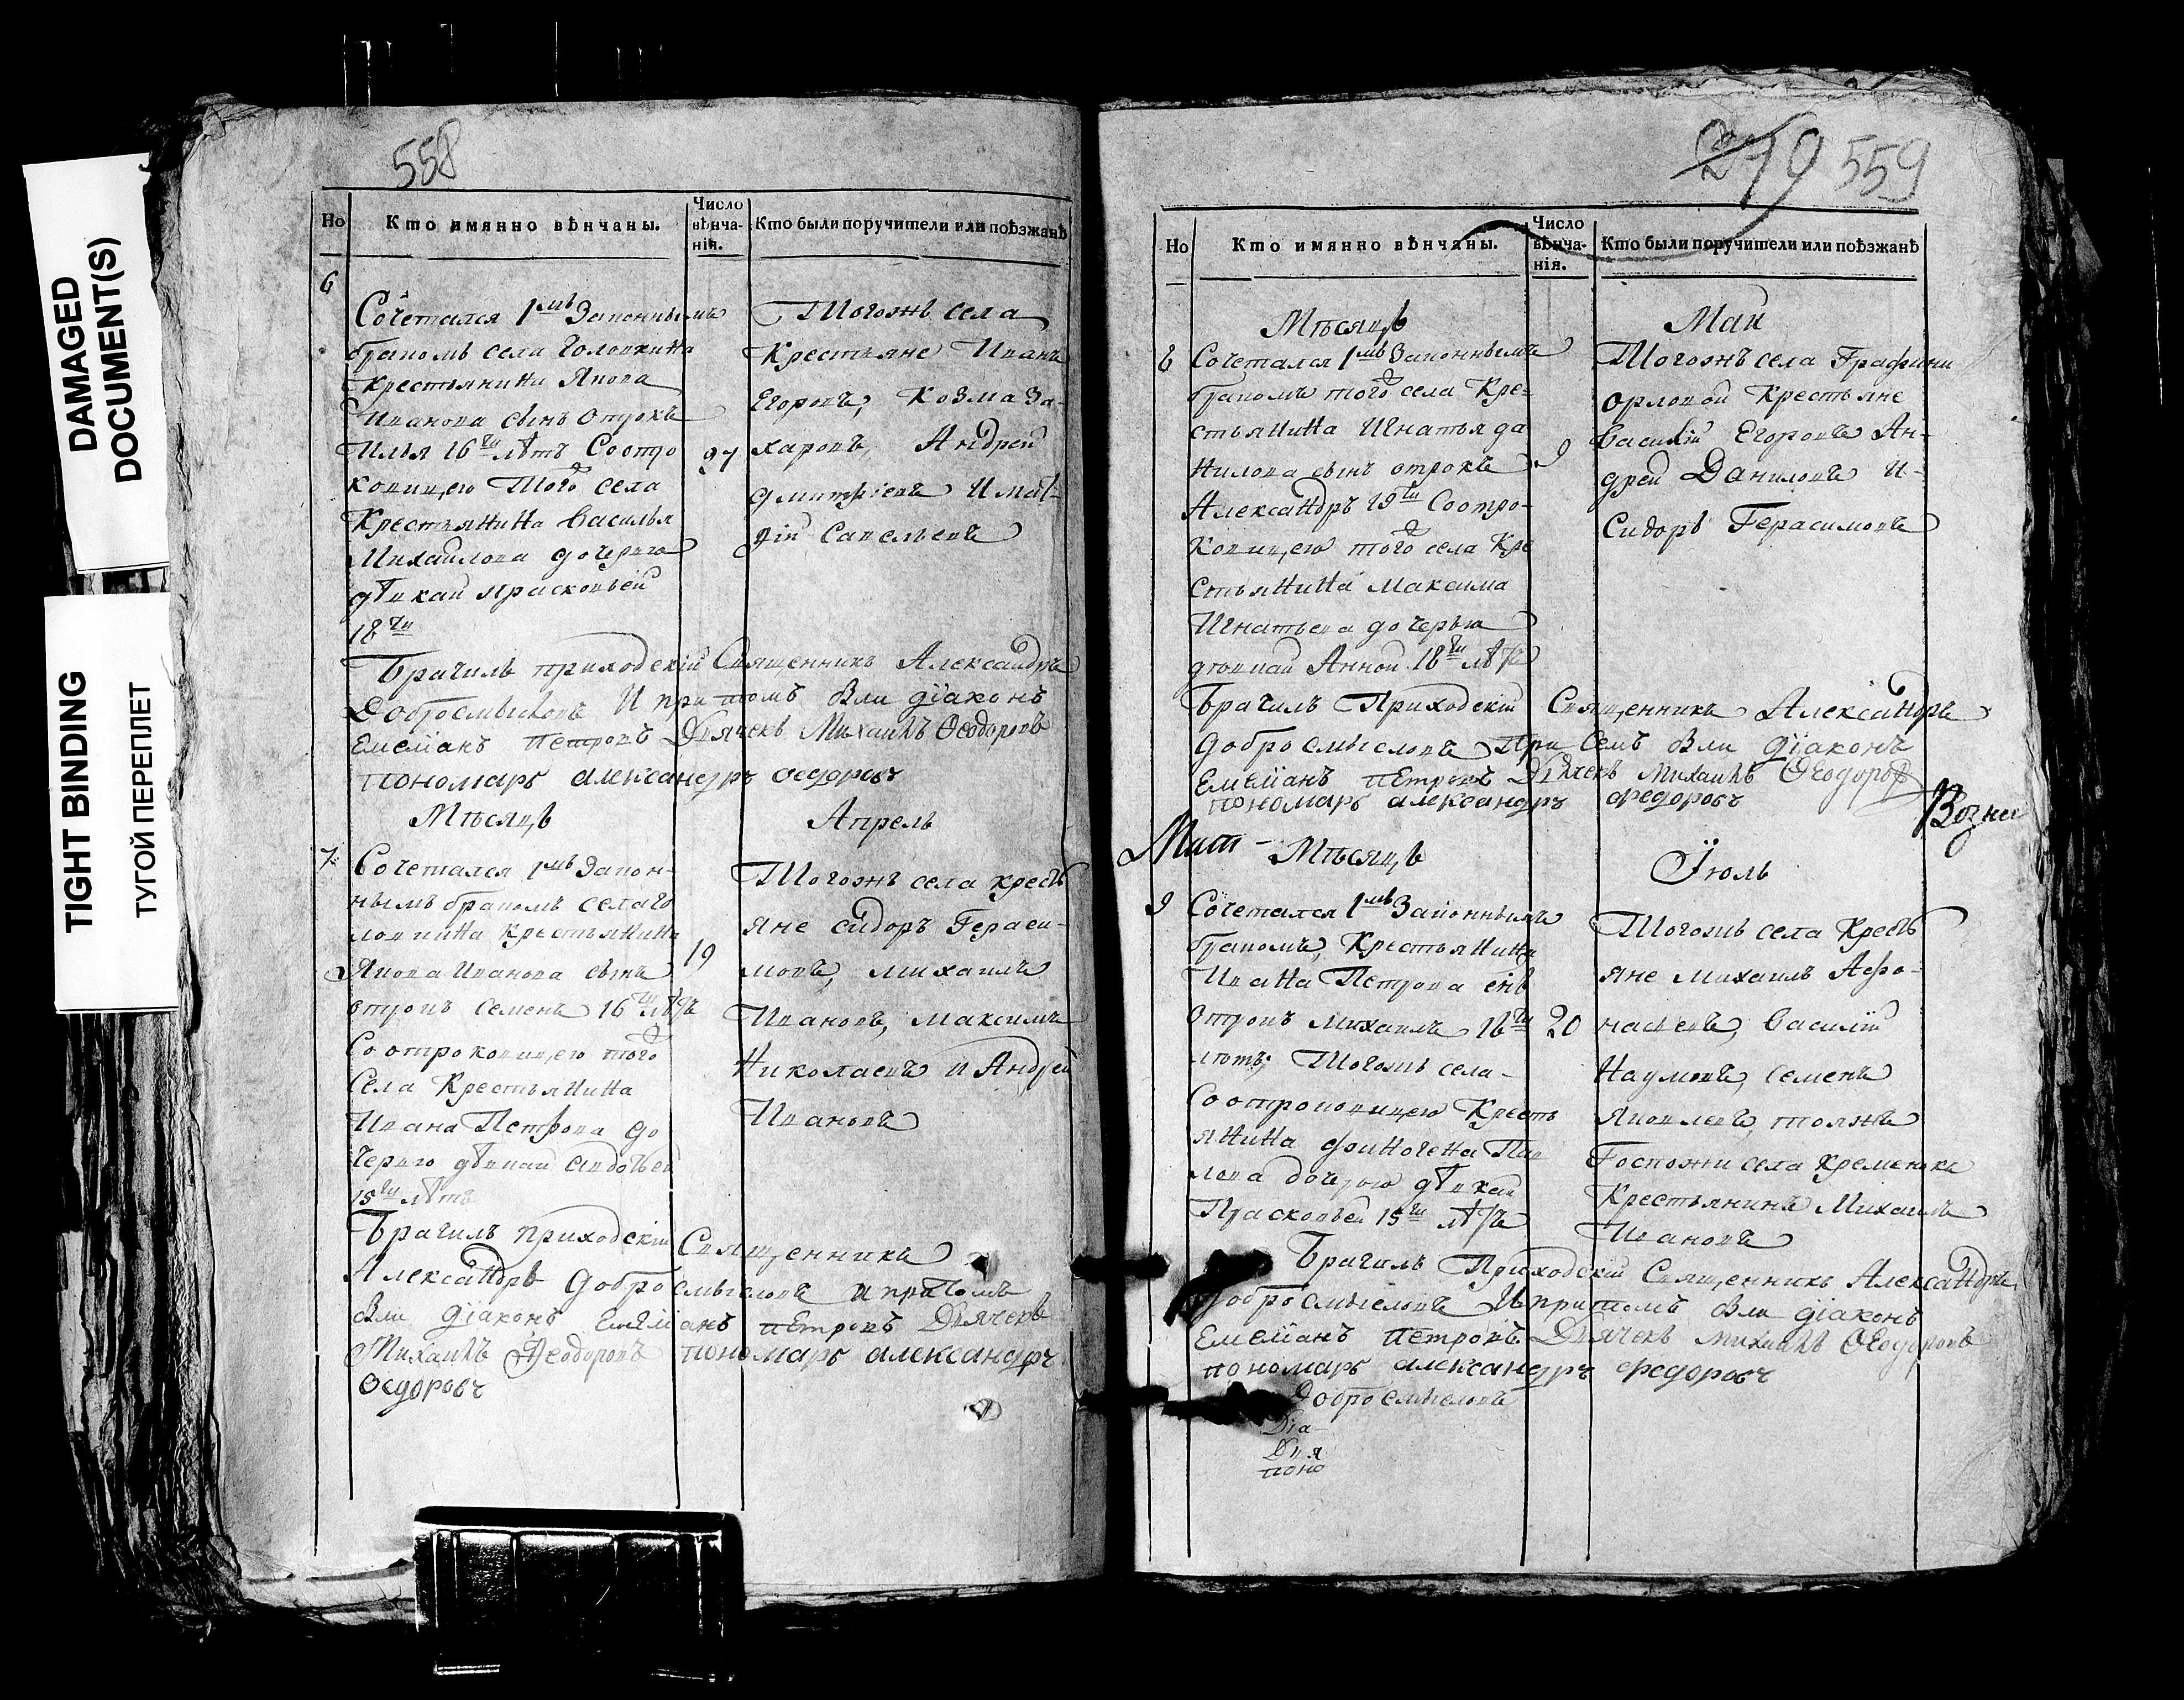 DAMAGED
DOCUMENT(S)
TIGHT BINDING
ТУГОЙ ПЕРЕПЛЕТ
558
Но
Кто имянно вѣнчаны.
Число
вѣнча-
нія.
Кто были поручители или поѣзжанѣ
6
Сочетался 1мъ Законнымъ
бракомъ села Головкина
Крестьянина Якова
Иванова сынъ отрокъ
Илья 16ти лѣтъ Соотро
ковицею Того села
Крестьянина Василья
Михайлова дочерью
дѣвкай Прасковьей
18ти
27
Тогожъ села
Крестьяне Иванъ
Егоровъ, Козма За-
харовъ, Андрей
Дмитріевъ И
Савельевъ
Брачилъ приходскій Священникъ Александръ
Добросмысловъ И притомъ вли діаконъ
Емеліанъ Петровъ Дьячекъ Михаилъ Ѳеодоровъ
пономарь александръ ѳедоровъ
Мѣсяцъ
Апрель
7
Сочетался 1мъ Закон-
нымъ бракомъ села Го
ловкина Крестьянина
Якова Иванова сынъ
отрокъ Семенъ 16ти лѣтъ
Соотроковицею того
Села Крестьянина
Ивана Петрова до
черью дѣвкай Авдотьей
15ти лѣтъ
19
Тогожъ села кресть
яне сидоръ Гераси-
мовъ, михаилъ
Ивановъ, максимъ
Николаевъ и Андрей
Ивановъ
Брачилъ приходскій Священникъ
Александръ Добросмысловъ и притомъ
вли діаконъ Емеліанъ Петровъ Дьячекъ
Михаилъ Ѳеодоровъ пономарь александръ
ѳедоровъ
279 559
Но
Кто имянно вѣнчаны.
Число
вѣнча-
нія.
Кто были поручители или поѣзжанѣ
Мѣсяцъ
Маи
8
Сочетался 1мъ Законнымъ
бракомъ того села Кре-
стьянина Игнатья да
нилова сынъ отрокъ
Александръ 19ти Соотро-
ковицею того села Кре
стьянина Максима
Игнатьева дочерью
дѣвкай Анной 18ти лѣтъ
9
Тогожъ села Графини
орловой Крестьяне
Василій Егоровъ Ан-
дрей Даниловъ И-
Сидоръ Герасимовъ
Брачилъ Приходскій Священникъ Александръ
Добросмысловъ При семъ вли діаконъ
Емеліанъ Петровъ Дьячекъ михаилъ Ѳеодоровъ
пономарь александръ федоровъ
Возне
Мит - Мѣсяцъ
Їюль
9
Сочетался 1мъ Законнымъ
бракомъ, Крестьянина
Ивана Петрова снъ
отрокъ михаилъ 16ти
лѣтъ; Тогожъ села-
Соотроковицею Кресть
янина финогена Пав
лова дочерью дѣвкай
Прасковьей 15ти лѣтъ
20
Тогожъ села Кресть
яне михаилъ Афо-
насьевъ, Василій
Наумовъ, семенъ
Яковлевъ, тояжъ
Госпожи села кременокъ
Крестьянинъ Михаилъ
Ивановъ
Брачилъ Приходскій Священникъ Александръ
Добросмысловъ И притомъ вли діаконъ
Емеліанъ Петровъ Дьячекъ михаилъ Ѳеодоровъ
пономарь александръ федоровъ
Добросмысловъ
Діа-
Дья
поно